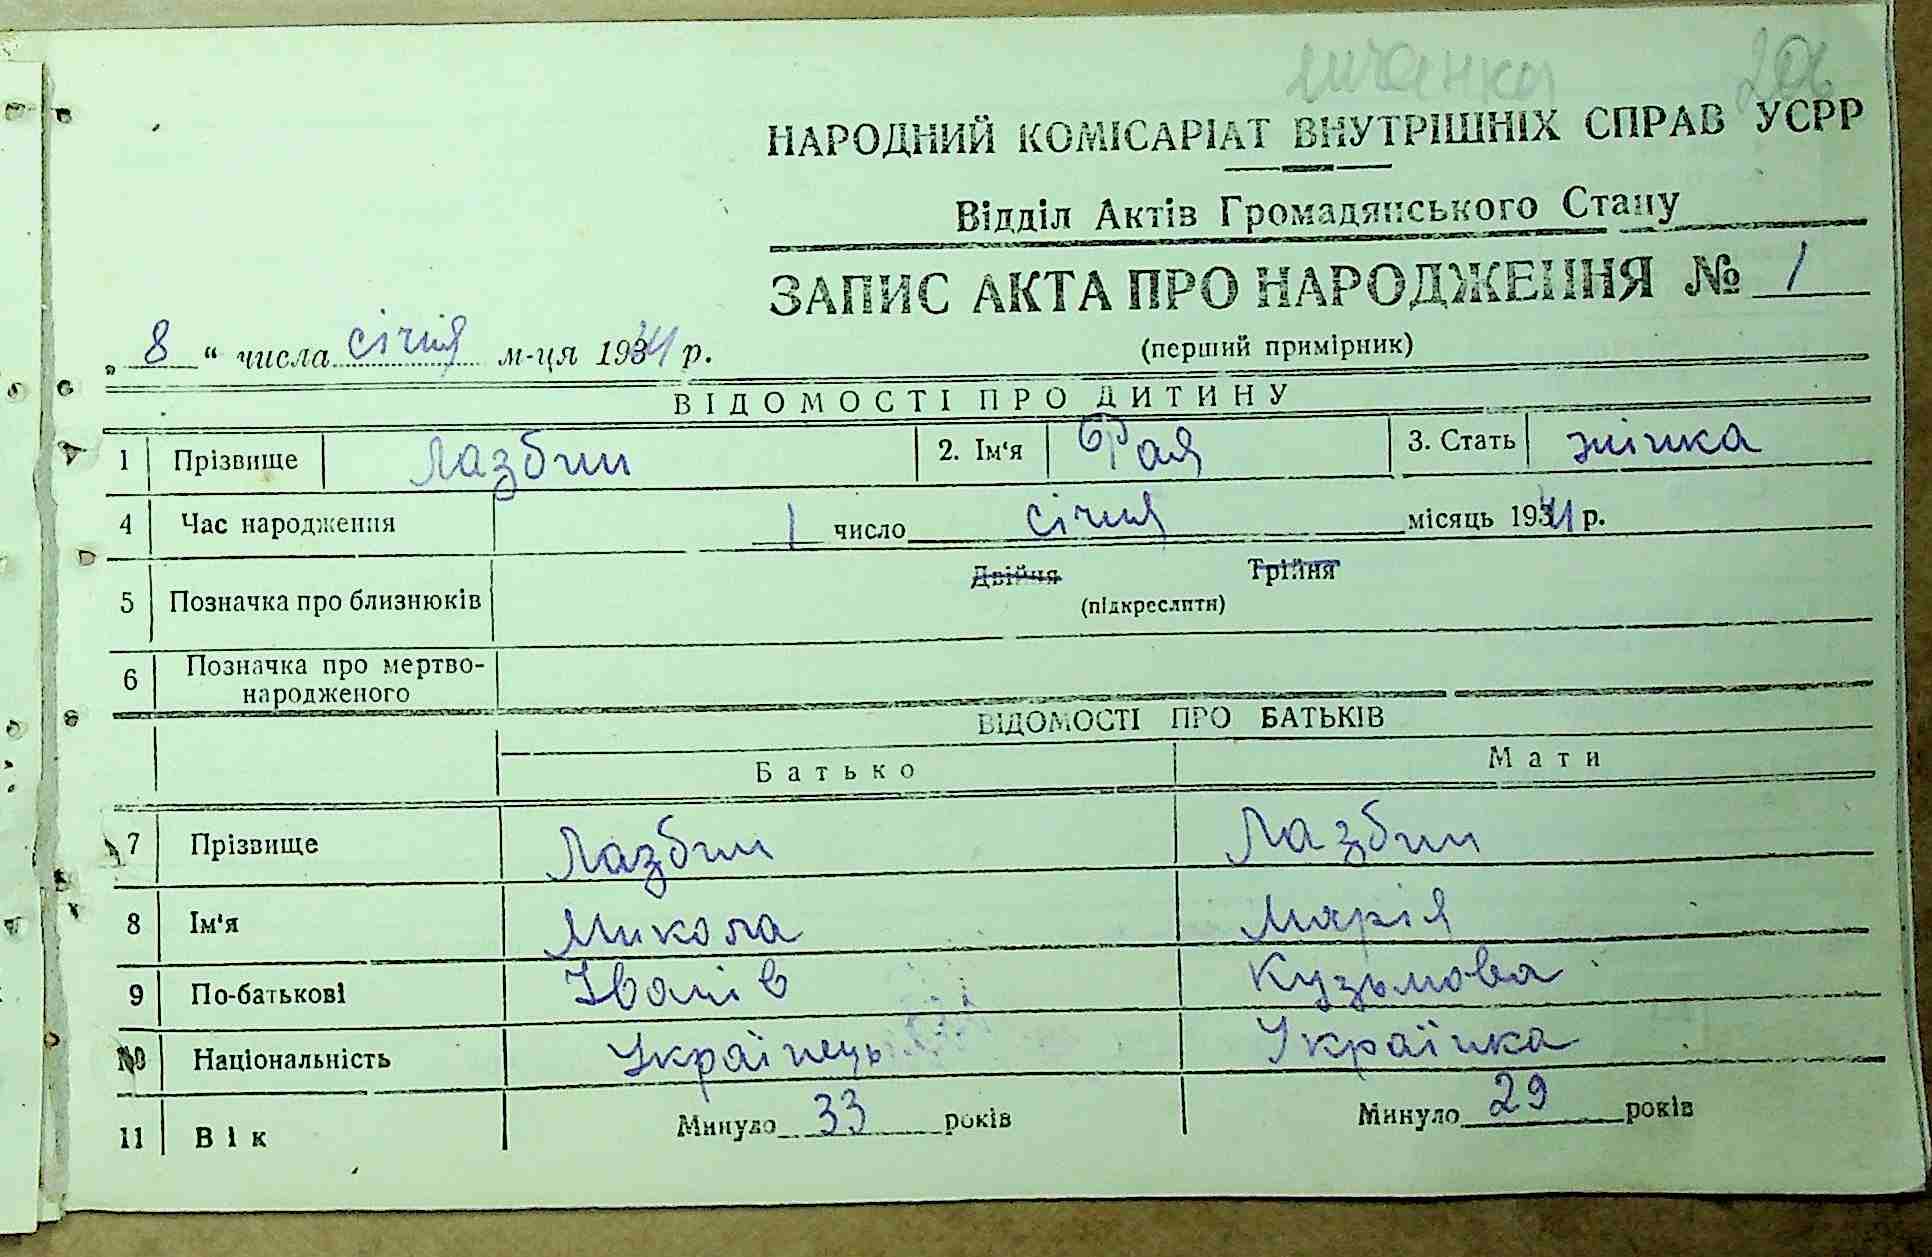 206
НАРОДНИЙ КОМІСАРІАТ ВНУТРІШНІХ СПРАВ УСРР
Відділ Актів Громадянського Стану
ЗАПИС АКТА ПРО НАРОДЖЕННЯ № 1
„ 8 “ числа січня м-ця 1934 р.
(перший примірник)
ВІДОМОСТІ ПРО ДИТИНУ
1 Прізвище Лазбин 2. Ім‘я Рая 3. Стать жінка
4 Час народження 1 число січня місяць 1934 р.
5 Позначка про близнюків Двійня Трійня
(підкреслити)
6 Позначка про мертво-
народженого
ВІДОМОСТІ ПРО БАТЬКІВ
Батько Мати
7 Прізвище Лазбин Лазбин
8 Ім‘я Микола Марія
9 По-батькові Іванів Кузьмова
10 Національність Українець Українка
11 Вік Минуло 33 років Минуло 29 років